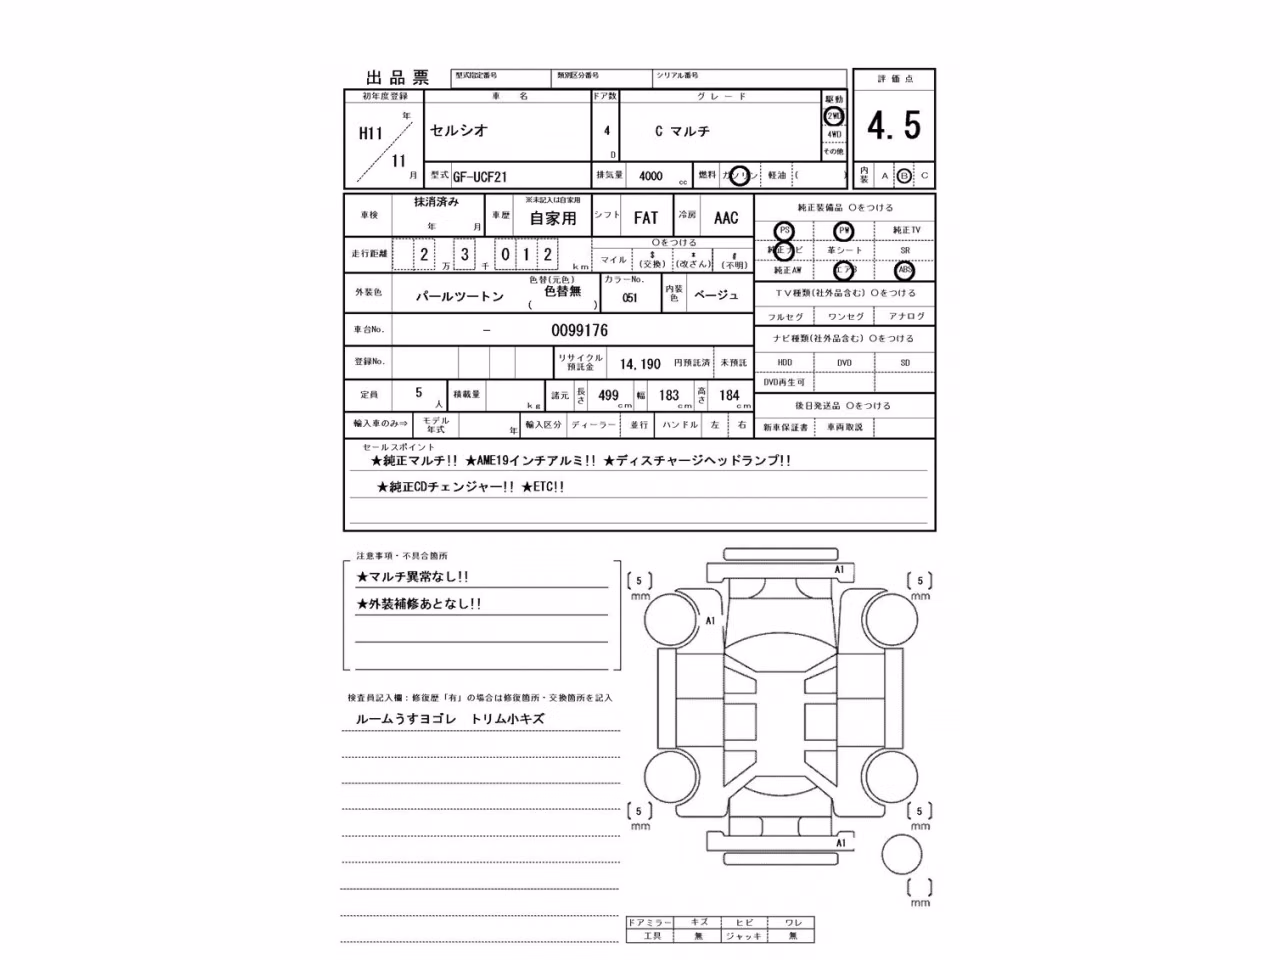 出品票 型式指定番号 類別区分番号 シリアル番号
評価点
4.5
内装 A B C
初年度登録 車名 ドア数 グレード 駆動
H11年 11月 セルシオ 4D C マルチ 2WD 4WD その他
型式 GF-UCF21 排気量 4000 cc 燃料 ガソリン 軽油 ( )
車検 抹消済み 年 月 車歴 ※未記入は自家用 自家用 シフト FAT 冷房 AAC
走行距離 2万3千012km 〇をつける マイル $(交換) *(改ざん) #(不明)
外装色 パールツートン 色替(元色) 色替無 ( ) カラーNo. 051 内装色 ベージュ
車台No. - 0099176
登録No. リサイクル預託金 14,190 円預託済 未預託
定員 5人 積載量 kg 諸元 長さ 499cm 幅 183cm 高さ 184cm
輸入車のみ⇒ モデル年式 年 輸入区分 ディーラー 並行 ハンドル 左 右
純正装備品 〇をつける
PS PW 純正TV
純正ナビ 革シート SR
純正AW エアB ABS
TV種類(社外品含む) 〇をつける
フルセグ ワンセグ アナログ
ナビ種類(社外品含む) 〇をつける
HDD DVD SD
DVD再生可
後日発送品 〇をつける
新車保証書 車両取説
セールスポイント
★純正マルチ!! ★AME19インチアルミ!! ★ディスチャージヘッドランプ!!
★純正CDチェンジャー!! ★ETC!!
注意事項・不具合箇所
★マルチ異常なし!!
★外装補修あとなし!!
検査員記入欄：修復歴「有」の場合は修復箇所・交換箇所を記入
ルームうすヨゴレ トリム小キズ
A1
[5] mm [5] mm
A1
[5] mm [5] mm
A1
[ ] mm
ドアミラー キズ ヒビ ワレ
工具 無 ジャッキ 無